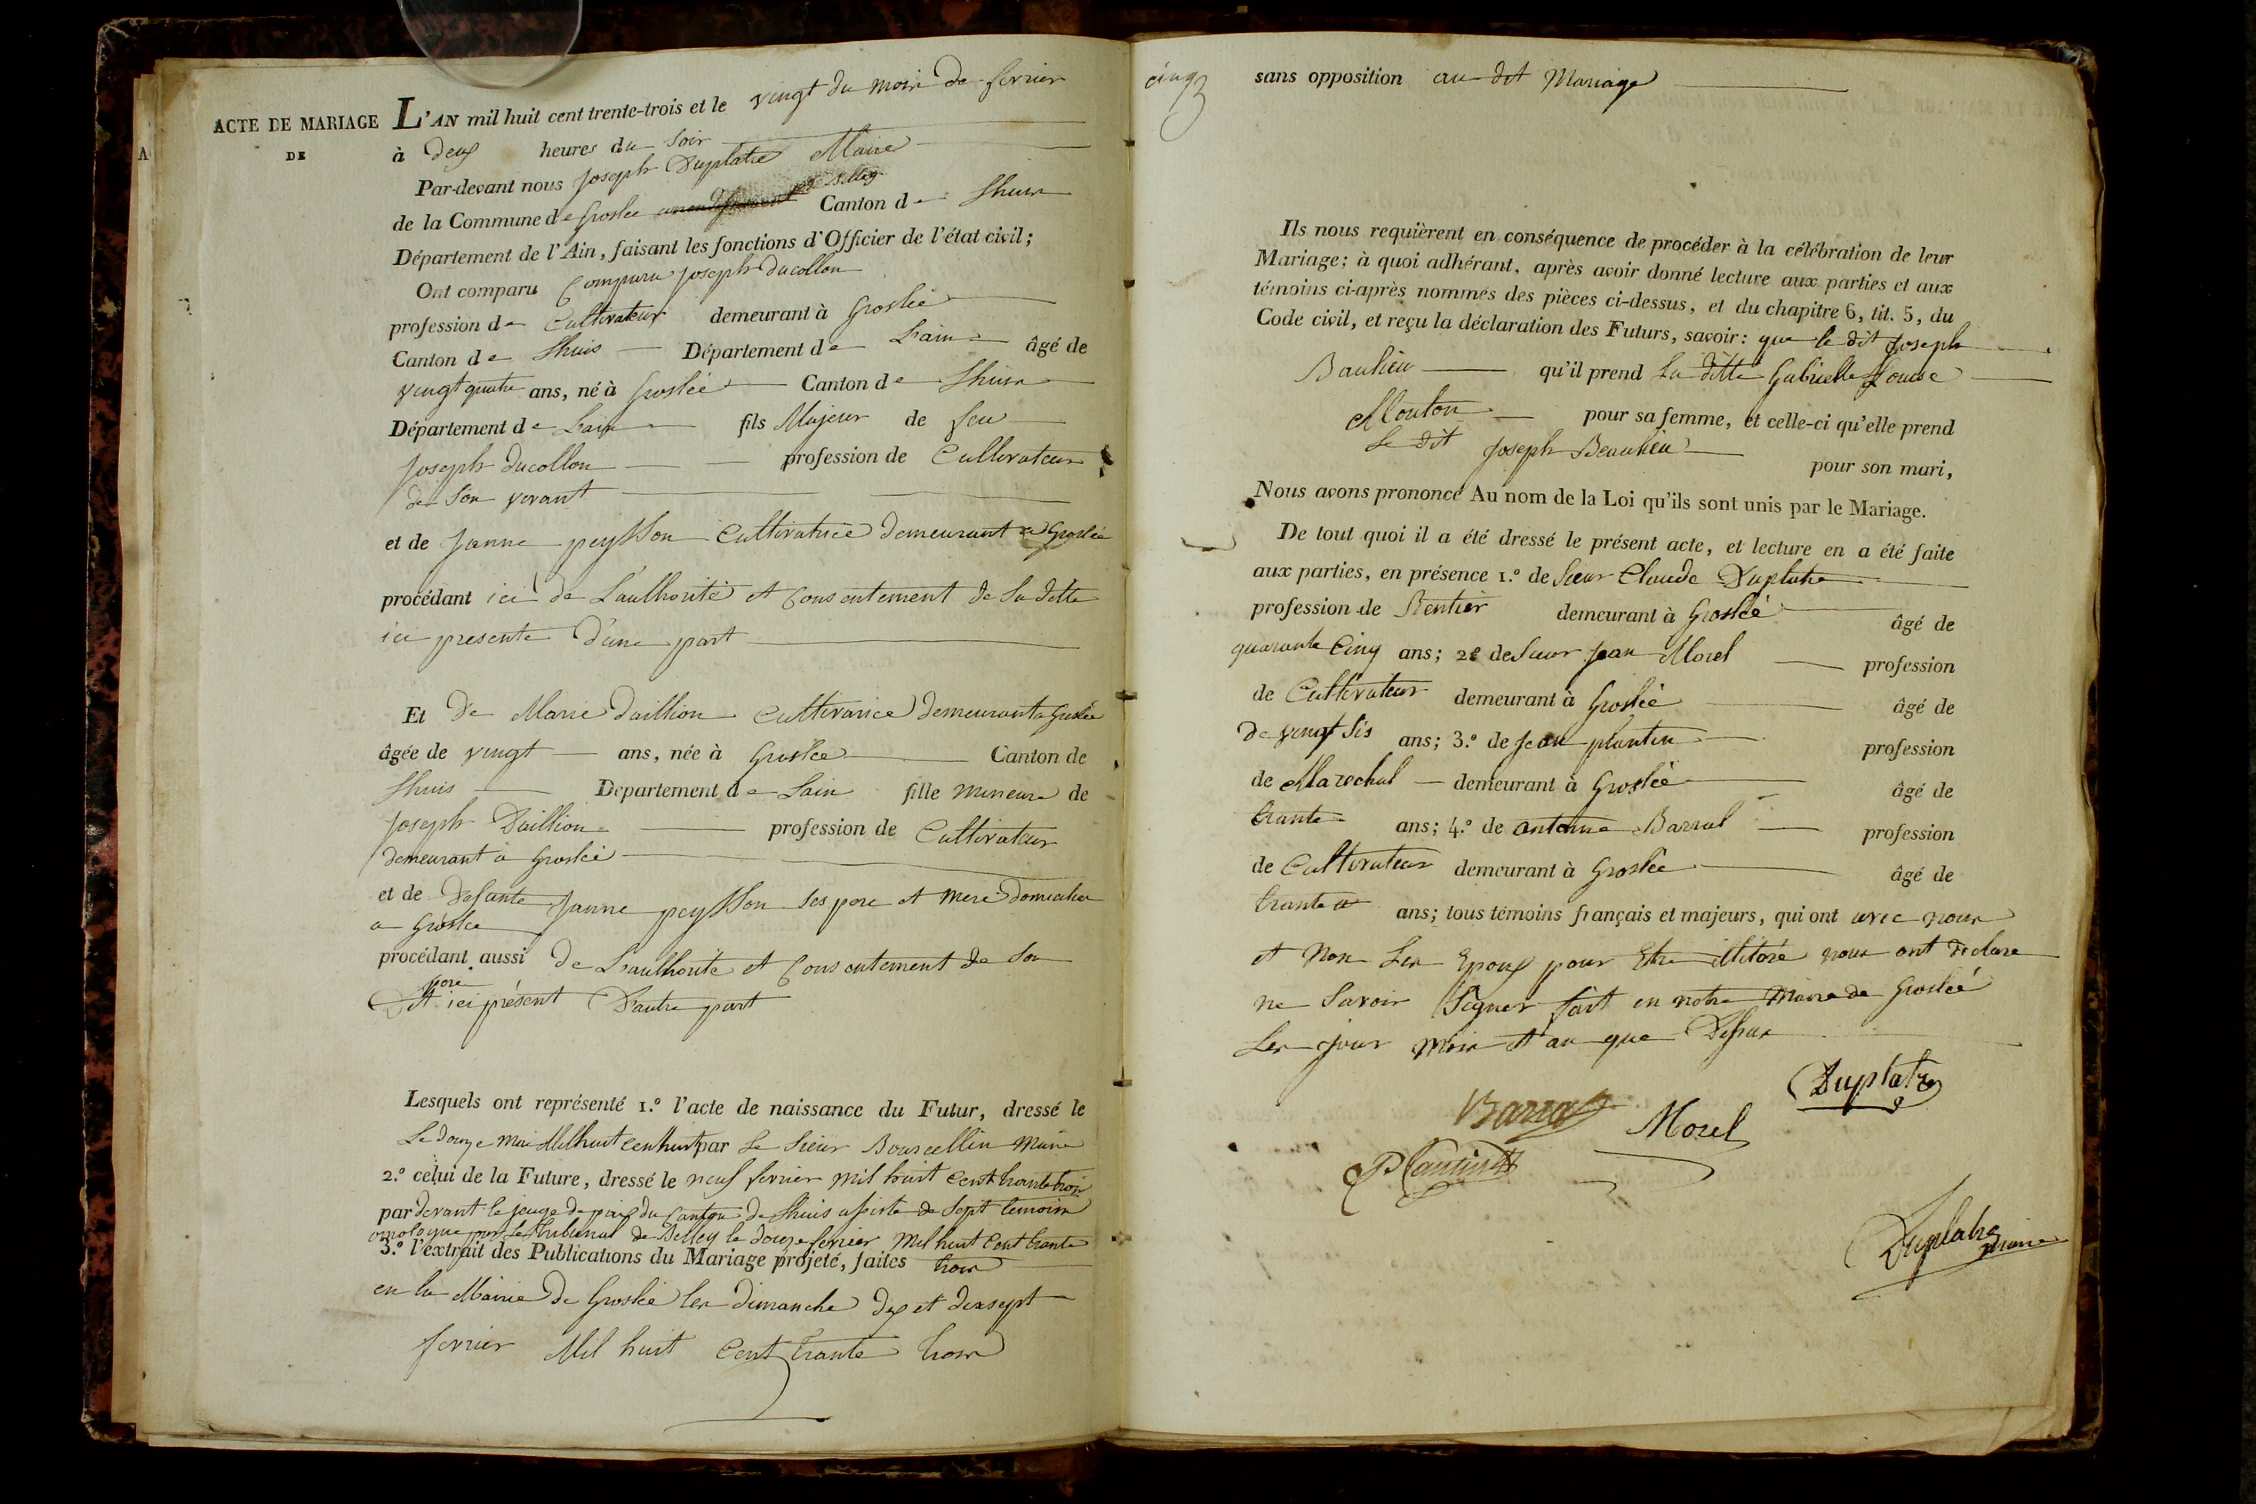 ACTE DE MARIAGE
DE
L'AN mil huit cent trente-trois et le vingt du mois de fevrier
à deux heures du soir
Par-devant nous joseph Duplatre Maire
de la Commune de Groslee Canton de Lhuis
Département de l'Ain, faisant les fonctions d'Officier de l'état civil;
Ont comparu Comparu joseph ducollon
profession de Cultivateur demeurant à Groslée
Canton de Lhuis Département de Lain âgé de
vingt quatre ans, né à Groslée Canton de Lhuis
Département de Lain fils Majeur de feu
joseph ducollon profession de Cultivateur
de son vivant
et de janne peysson Cultivatrice demeurant a Groslée
procédant ici de L'authorité et Consentement de sa ditte
ici presente d'une part
Et De Marie daillion Cultivarice demeurant a Groslée
âgée de vingt ans, née à Groslee Canton de
Lhuis Département de Lain fille mineure de
joseph Daillion profession de Cultivateur
demeurant à Groslée
et de Defante janne peysson ses pere et mere
a Groslee
procédant aussi de Lauthorité et Consentement de son
pere
Dit ici présent D'autre part
Lesquels ont représenté 1.º l'acte de naissance du Futur, dressé le
Le douze Mai Milhuit centhuit par Le Sieur Bourcellin Maire
2.º celui de la Future, dressé le neuf fevrier mil huit cent trante trois
par devant le jeuge de paix du Canton de Lhuis assiste de Sept temoins
omologue par Le Tribunal de Belley le douze fevrier Mil huit Cent trante
3.º l'extrait des Publications du Mariage projeté, faites trois
en la Mairie de Groslée les dimanche dix et dixsept
fevrier Mil huit Cent trante trois
cinq
sans opposition au dit Mariage
Ils nous requièrent en conséquence de procéder à la célébration de leur
Mariage; à quoi adhérant, après avoir donné lecture aux parties et aux
témoins ci-après nommés des pièces ci-dessus, et du chapitre 6, tit. 5, du
Code civil, et reçu la déclaration des Futurs, savoir: que le dit joseph
Baulieu qu'il prend La ditte Gabrielle Louise
Mouton pour sa femme, et celle-ci qu'elle prend
Le dit joseph Beaulieu pour son mari,
Nous avons prononcé Au nom de la Loi qu'ils sont unis par le Mariage.
De tout quoi il a été dressé le présent acte, et lecture en a été faite
aux parties, en présence 1.º de sieur Claude Duplatre
profession de Rentier demeurant à Groslée âgé de
quarante Cinq ans; 2º de sieur jean Morel profession
de Cultivateur demeurant à Groslée âgé de
de vingt sis ans; 3.º de jean plantin profession
de Marechal demeurant à Groslée âgé de
trante ans; 4.º de antoine Barral profession
de Cultivateur demeurant à Groslée âgé de
trante ans; tous témoins français et majeurs, qui ont avec nous
et Non Les Epoux pour Etre nous ont déclare
ne Savoir Signer fait en notre Mairie de Groslée
Les jour mois et an que Dessus
Duplatre
Barral
Morel
Plantin
Duplatre
maire